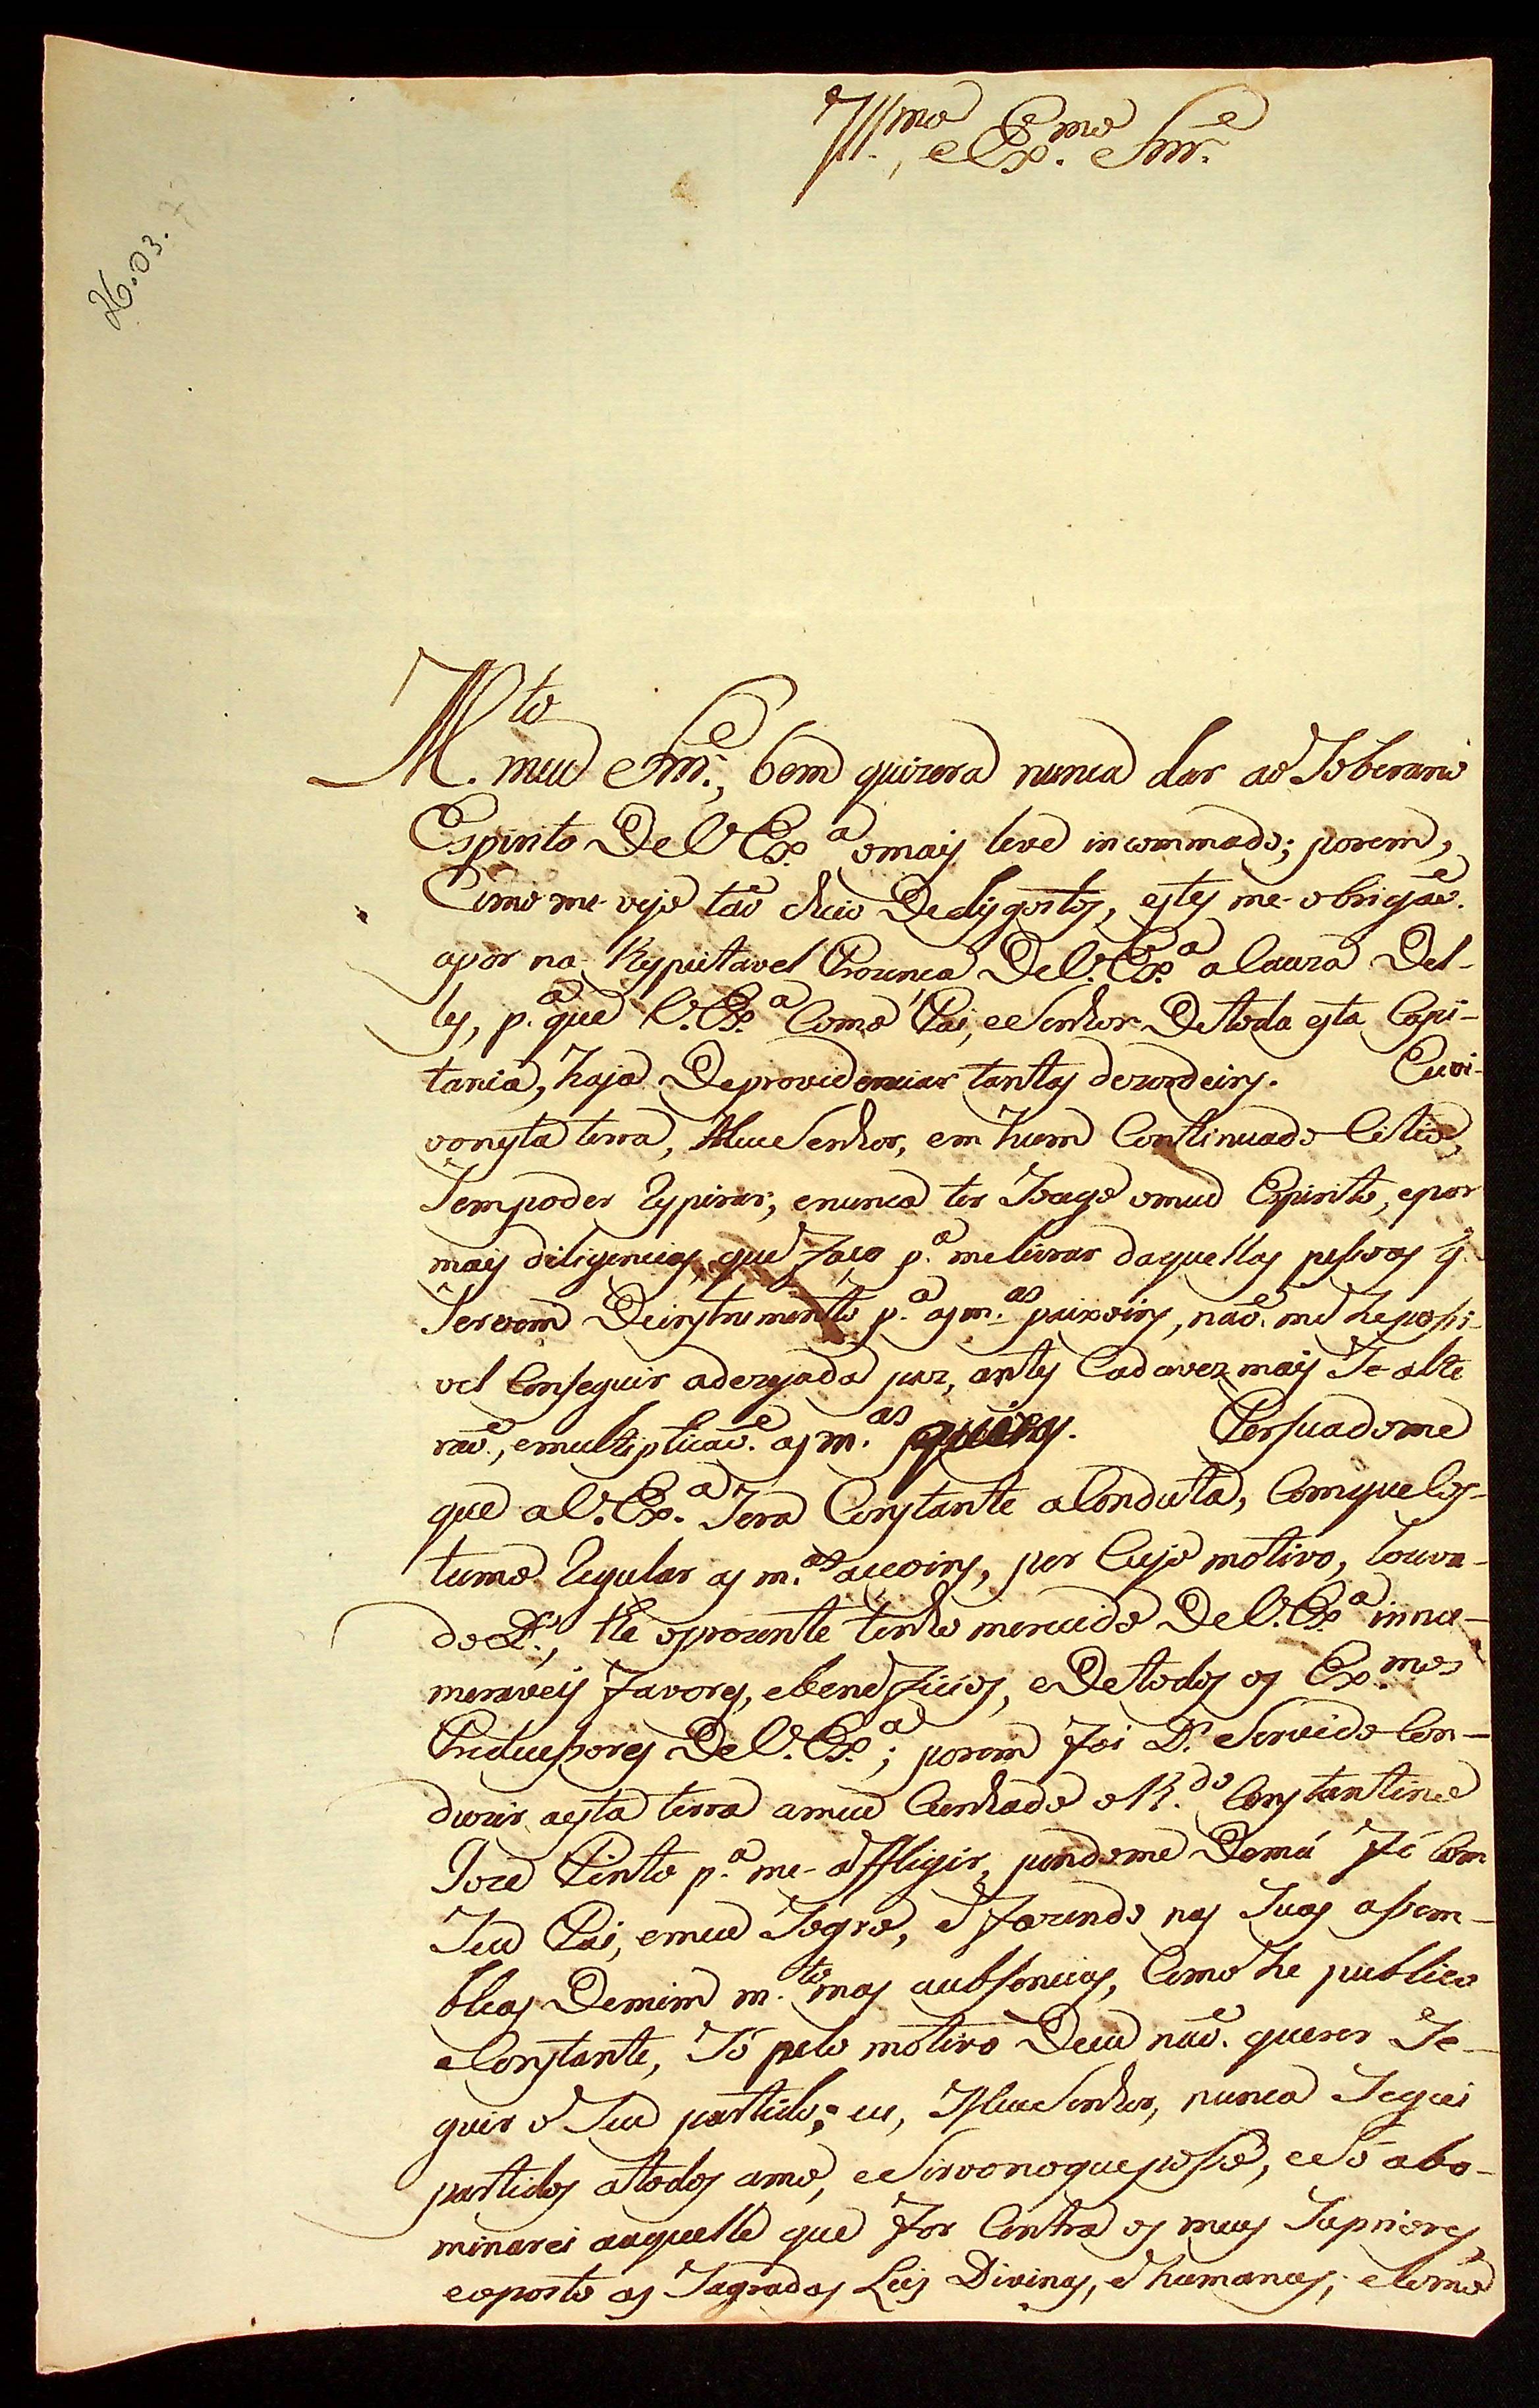 Ill.mo, e Ex.mo Snr.e
26.03.7
M.to meu Snr.e, bem quizera nunca dar ao Soberano
Espirito De V. Ex.a o mais leve incommado; porem,
Como me-vejo taõ cheio De disgostos, estes me-obrigaõ.
apôr na Respeitavel Prezenca De V. Ex.a a Cauza Del-
les, p.a que V. Ex.a Como Pai, e Senhor De toda esta Capi-
tania, haja De providenciar tantas dezordeins. Eu vi-
vo nesta terra, Meu Senhor, em hum Continuado Citio,
Sem poder respirar, e nunca ter Socego o meu Espirito, e por
mais diligencias, que faço p.a me livrar daquellas pessoas q.
Servem De instrumento p.a as m.as paixoins, naõ. me he possi-
vel Conseguir a dezejada paz, antes Cada vez mais Se alte
raõ., e multiplicaõ. as m.as
Persuadome
que a V. Ex.a Sera Constante a Conduta, Com que Cos-
tumo Regular as m.as accoins, por Cujo motivo, louva-
do D.s, the o prezente tenho merecido De V. Ex.a innu-
meraveis favores, e beneficios, e De todos os Ex.mos
Predecessores De V. Ex.a; porem foi D.s Servido Con-
duzir a esta terra a meu Cunhado o R.do Constantino
Joze Pinto p.a me-affligir, pondome De má fé Com
Seu Pai, e meu Sogro, e fazendo nas Suas assem-
bleas De mim m.to mas aubsencias, Como he publico
e Constante, Só pelo motivo De eu naõ. querer Se-
guir o Seu partido; eu, Meu Senhor, nunca Segui
partidos a todos amo, e Sirvo no que posso, e Só abo-
minarei aaquelle que for Contra os meus Supriores,
e oposto as Sagradas Leis Divinas, e humanas; e Como